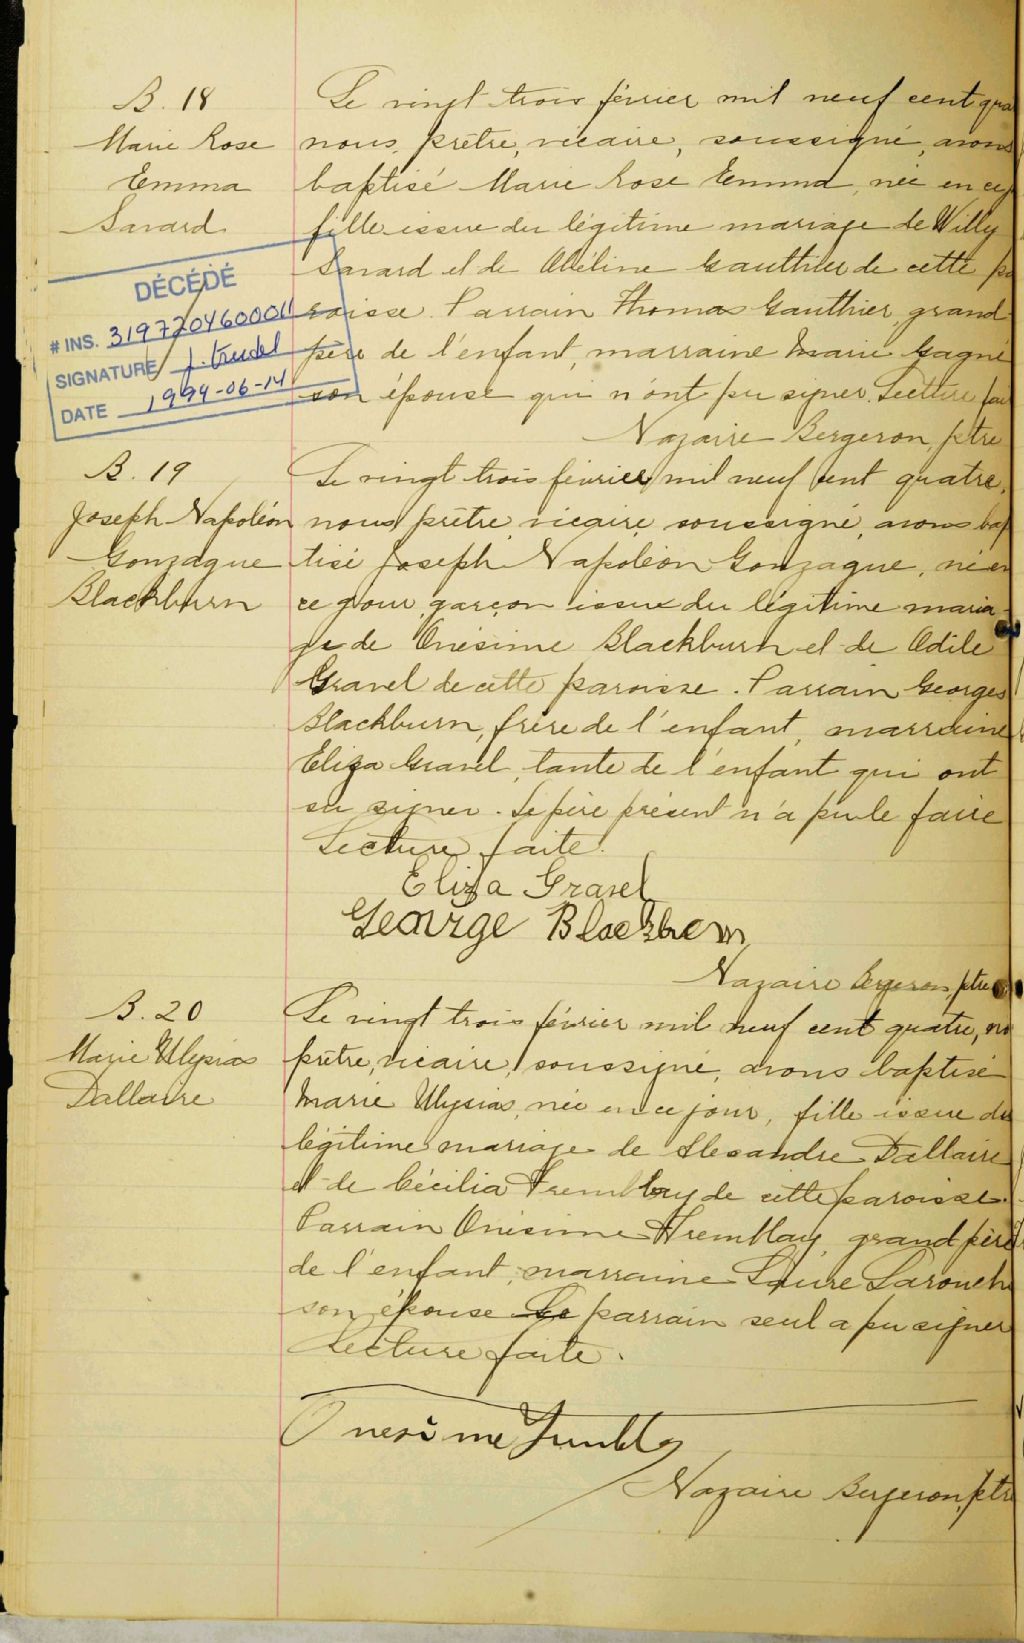 B. 18
Marie Rose
Emma
Savard
Le vingt trois février mil neuf cent qua
nous, prêtre, vicaire, soussigné, avons
baptisé Marie Rose Emma, née en ce j
fille issue du légitime mariage de Willy
Savard et de Adéline Gauthier de cette pa
roisse. Parrain Thomas Gauthier, grand
père de l'enfant, marraine Marie Gagné
son épouse qui n'ont pu signer. Lecture fai
Nazaire Bergeron, ptre
DÉCÉDÉ
# INS. 3197204600011
SIGNATURE J. Trudel
DATE 1994-06-14
B. 19
Joseph Napoléon
Gonzague
Blackburn
Le vingt trois février mil neuf cent quatre,
nous, prêtre, vicaire, soussigné, avons bap
tisé Joseph Napoléon Gonzague, né en
ce jour, garçon issue du légitime maria-
ge de Onésime Blackburn et de Odile
Gravel de cette paroisse. Parrain Georges
Blackburn, frère de l'enfant, marraine
Eliza Gravel, tante de l'enfant qui ont
su signer. Le père présent n'a pu le faire
Lecture faite.
Eliza Gravel
George Blackburn
Nazaire Bergeron, ptre
B. 20
Marie Ulysias
Dallaire
Le vingt trois février mil neuf cent quatre, no
prêtre, vicaire, soussigné, avons baptisé
Marie Ulysias, née en ce jour, fille issue du
légitime mariage de Alexandre Dallaire
et de Cécilia Tremblay de cette paroisse.
Parrain Onésime Tremblay, grand père
de l'enfant, marraine Laure Larouch
son épouse Le parrain seul a pu signer
Lecture faite.
Onesime Trembly
Nazaire Bergeron, ptre